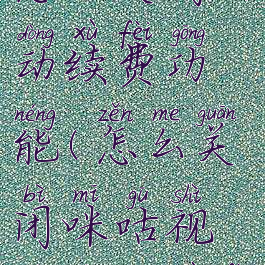 dòng xù fèi gōng
动续费功
néng zěn me guān
能(怎么关
bì mī gū shì
闭咪咕视